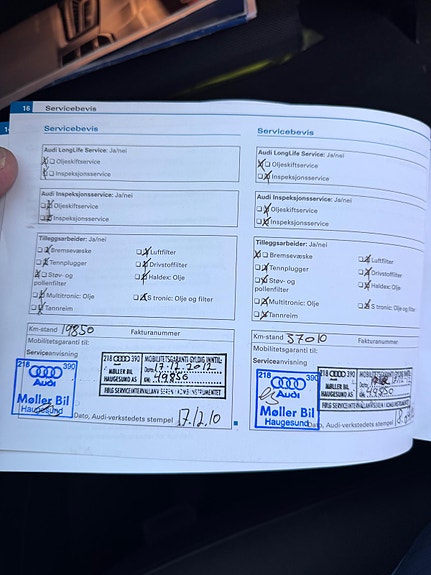 16 Servicebevis
Servicebevis
Audi LongLife Service: Ja/nei
Oljeskiftservice
Inspeksjonsservice
Audi Inspeksjonsservice: Ja/nei
Oljeskiftservice
Inspeksjonsservice
Tilleggsarbeider: Ja/nei
Bremsevæske
Tennplugger
Støv- og
pollenfilter
Multitronic: Olje
Tannreim
Luftfilter
Drivstoffilter
Haldex: Olje
S tronic: Olje og filter
Km-stand 19850 Fakturanummer
Mobilitetsgaranti til:
Serviceanvisning
218 390
Audi
Møller Bil
Haugesund
218 390 MOBILITETSGARANTI GYLDIG INNTIL:
MØLLER BIL Dato: 17.12.2012
HAUGESUND AS KM: 49850
Dato, Audi-verkstedets stempel 17/12.10
Servicebevis
Audi LongLife Service: Ja/nei
Oljeskiftservice
Inspeksjonsservice
Audi Inspeksjonsservice: Ja/nei
Oljeskiftservice
Inspeksjonsservice
Tilleggsarbeider: Ja/nei
Bremsevæske
Tennplugger
Støv- og
pollenfilter
Multitronic: Olje
Tannreim
Luftfilter
Drivstoffilter
Haldex: Olje
S tronic: Olje og filter
Km-stand 37010 Fakturanummer
Mobilitetsgaranti til:
Serviceanvisning
218 390
Audi
Møller Bil
Haugesund
218 390 MOBILITETSGARANTI GYLDIG INNTIL:
MØLLER BIL
HAUGESUND AS
Dato, Audi-verkstedets stempel